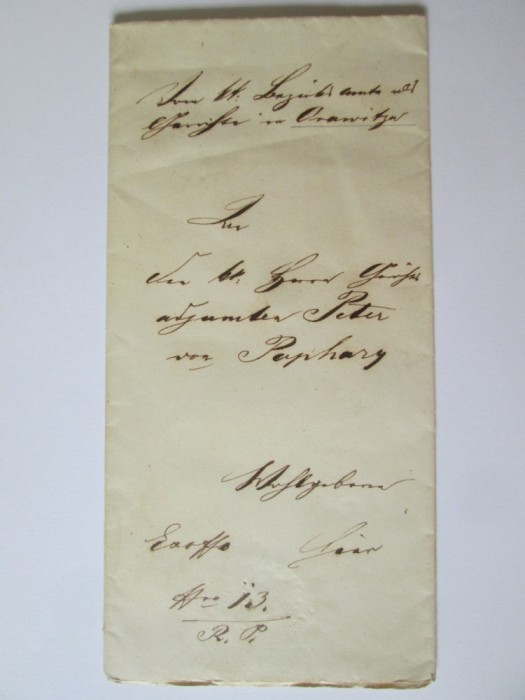 Vom kk: Bezirksamte als
Gerichte in Orawitza
An
den kk. Herrn Gerichts
adjunkten Peter
von Paphary
Wohlgeboren
Exoffo hier
Nro 13.
R. P.